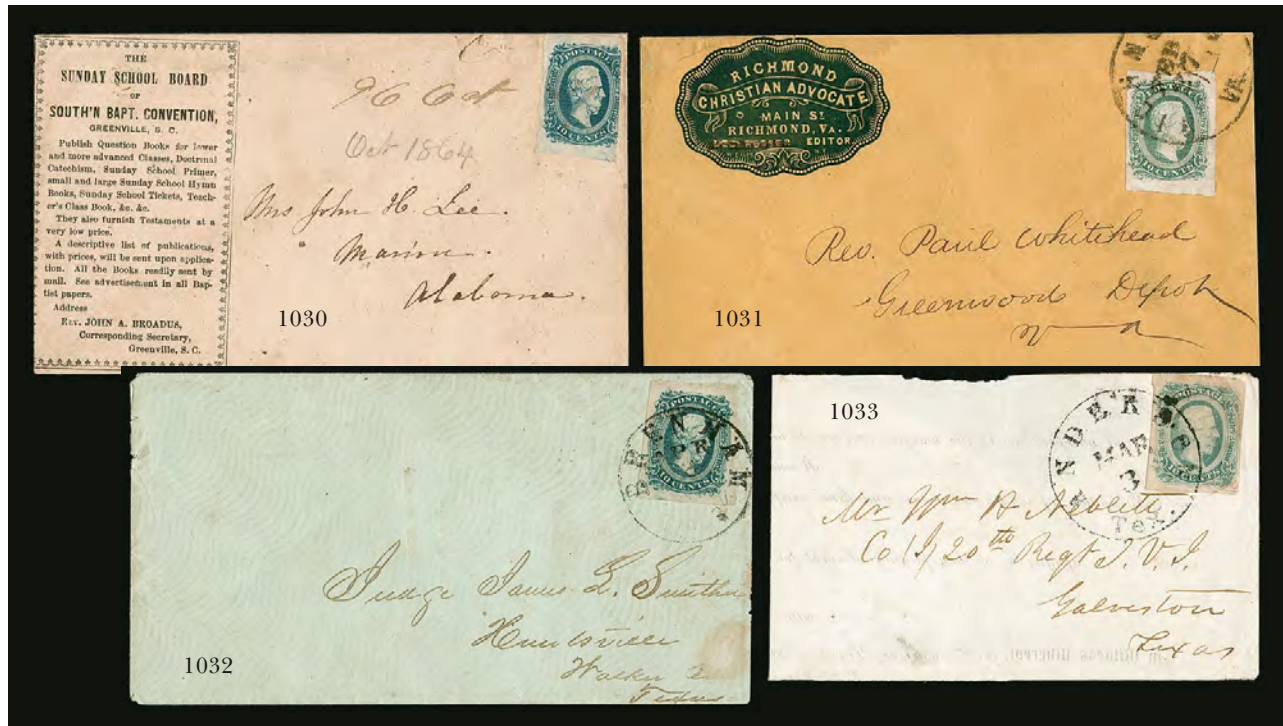 THE
SUNDAY SCHOOL BOARD
OF
SOUTH'N BAPT. CONVENTION,
GREENVILLE, S. C.
Publish Question Books for lower
and more advanced Classes, Doctrinal
Catechism, Sunday School Primer,
small and large Sunday School Hymn
Books, Sunday School Tickets, Teach-
er's Class Book, &c. &c.
They also furnish Testaments at a
very low price.
A descriptive list of publications,
with prices, will be sent upon applica-
tion. All the Books readily sent by
mail. See advertisement in all Bap-
tist papers.
Address
REV. JOHN A. BROADUS,
Corresponding Secretary,
Greenville, S. C.
Oct 1864
POSTAGE
10 CENTS
Mrs John H. Lee.
Marion.
Alabama.
1030
RICHMOND
CHRISTIAN ADVOCATE
MAIN ST
RICHMOND, VA.
EDITOR
VA.
POSTAGE
10 CENTS
Rev. Paul Whitehead
Greenwood Depot
Va
1031
POSTAGE
10 CENTS
BRENHAM
Judge James L. Smither
Huntsville
Walker
Texas
1032
1033
POSTAGE
MAR
3
Tex.
Mr Wm H Neblett
20th Regt T. V. I.
Galveston
Texas